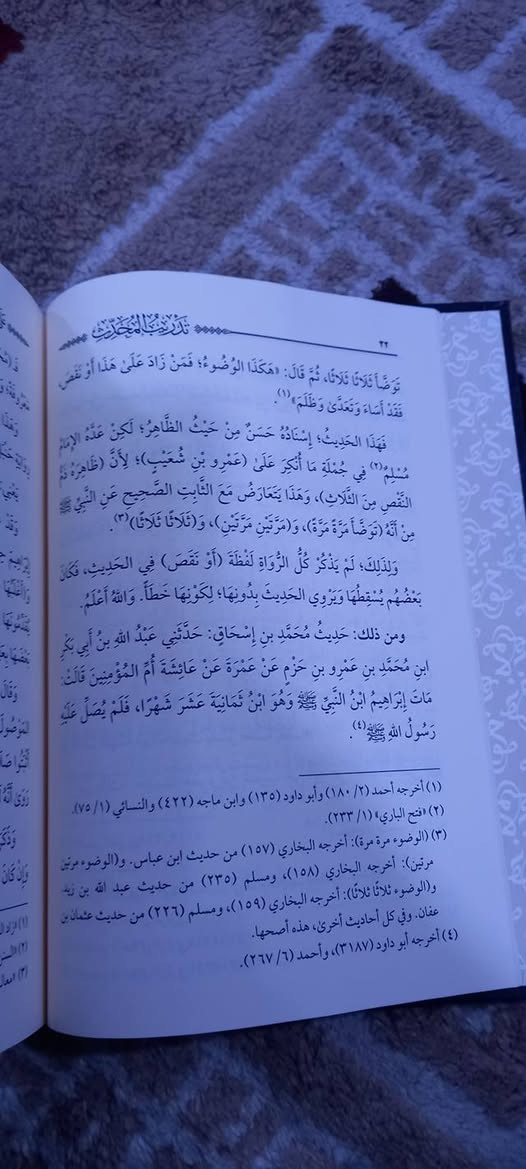 ٢٢
تدريب المحدث
تَوَضَّأَ ثَلَاثًا ثَلَاثًا، ثُمَّ قَالَ: «هَكَذَا الْوُضُوءُ؛ فَمَنْ زَادَ عَلَىٰ هَذَا أَوْ نَقَصَ،
فَقَدْ أَسَاءَ وَتَعَدَّىٰ وَظَلَمَ»(١).
فَهَذَا الحَدِيثُ؛ إِسْنَادُهُ حَسَنٌ مِنْ حَيْثُ الظَّاهِرُ؛ لَكِنْ عَدَّهُ الإِمَامُ
مُسْلِمٌ(٢) فِي جُمْلَةِ مَا أُنْكِرَ عَلَىٰ (عَمْرِو بْنِ شُعَيْبٍ)؛ لِأَنَّ (ظَاهِرَهُ ذَمُّ
النَّقْصِ مِنَ الثَّلَاثِ)، وَهَذَا يَتَعَارَضُ مَعَ الثَّابِتِ الصَّحِيحِ عَنِ النَّبِيِّ ﷺ
مِنْ أَنَّهُ (تَوَضَّأَ مَرَّةً مَرَّةً)، وَ(مَرَّتَيْنِ مَرَّتَيْنِ)، وَ(ثَلَاثًا ثَلَاثًا)(٣).
وَلِذَلِكَ؛ لَمْ يَذْكُرْ كُلُّ الرُّوَاةِ لَفْظَةَ (أَوْ نَقَصَ) فِي الحَدِيثِ، فَكَانَ
بَعْضُهُم يُسْقِطُهَا وَيَرْوِي الحَدِيثَ بِدُونِهَا؛ لِكَوْنِهَا خَطَأً. وَاللهُ أَعْلَمُ.
ومن ذلك: حَدِيثُ مُحَمَّدِ بنِ إِسْحَاقَ: حَدَّثَنِي عَبْدُ اللهِ بنُ أَبِي بَكْرِ
ابنِ مُحَمَّدِ بنِ عَمْرِو بنِ حَزْمٍ عَنْ عَمْرَةَ عَنْ عَائِشَةَ أُمِّ المُؤْمِنِينَ قَالَتْ:
مَاتَ إِبْرَاهِيمُ ابْنُ النَّبِيِّ ﷺ وَهُوَ ابْنُ ثَمَانِيَةَ عَشَرَ شَهْرًا، فَلَمْ يُصَلِّ عَلَيْهِ
رَسُولُ اللهِ ﷺ(٤).
(١) أخرجه أحمد (٢/ ١٨٠) وأبو داود (١٣٥) وابن ماجه (٤٢٢) والنسائي (١/ ٧٥).
(٢) «فتح الباري» (١/ ٢٣٣).
(٣) (الوضوء مرة مرة): أخرجه البخاري (١٥٧) من حديث ابن عباس. و(الوضوء مرتين
مرتين): أخرجه البخاري (١٥٨)، ومسلم (٢٣٥) من حديث عبد الله بن زيد.
و(الوضوء ثلاثًا ثلاثًا): أخرجه البخاري (١٥٩)، ومسلم (٢٢٦) من حديث عثمان بن
عفان. وفي كل أحاديث أخرى، هذه أصحها.
(٤) أخرجه أبو داود (٣١٨٧)، وأحمد (٦/ ٢٦٧).